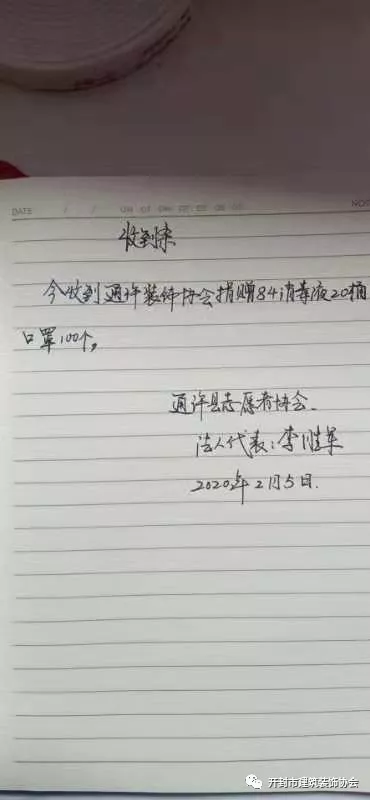 DATE / /
收到条
今收到通许装饰协会捐赠84消毒液20桶
口罩100个,
通许县志愿者协会.
法人代表:李胜军
2020年2月5日.
开封市建筑装饰协会